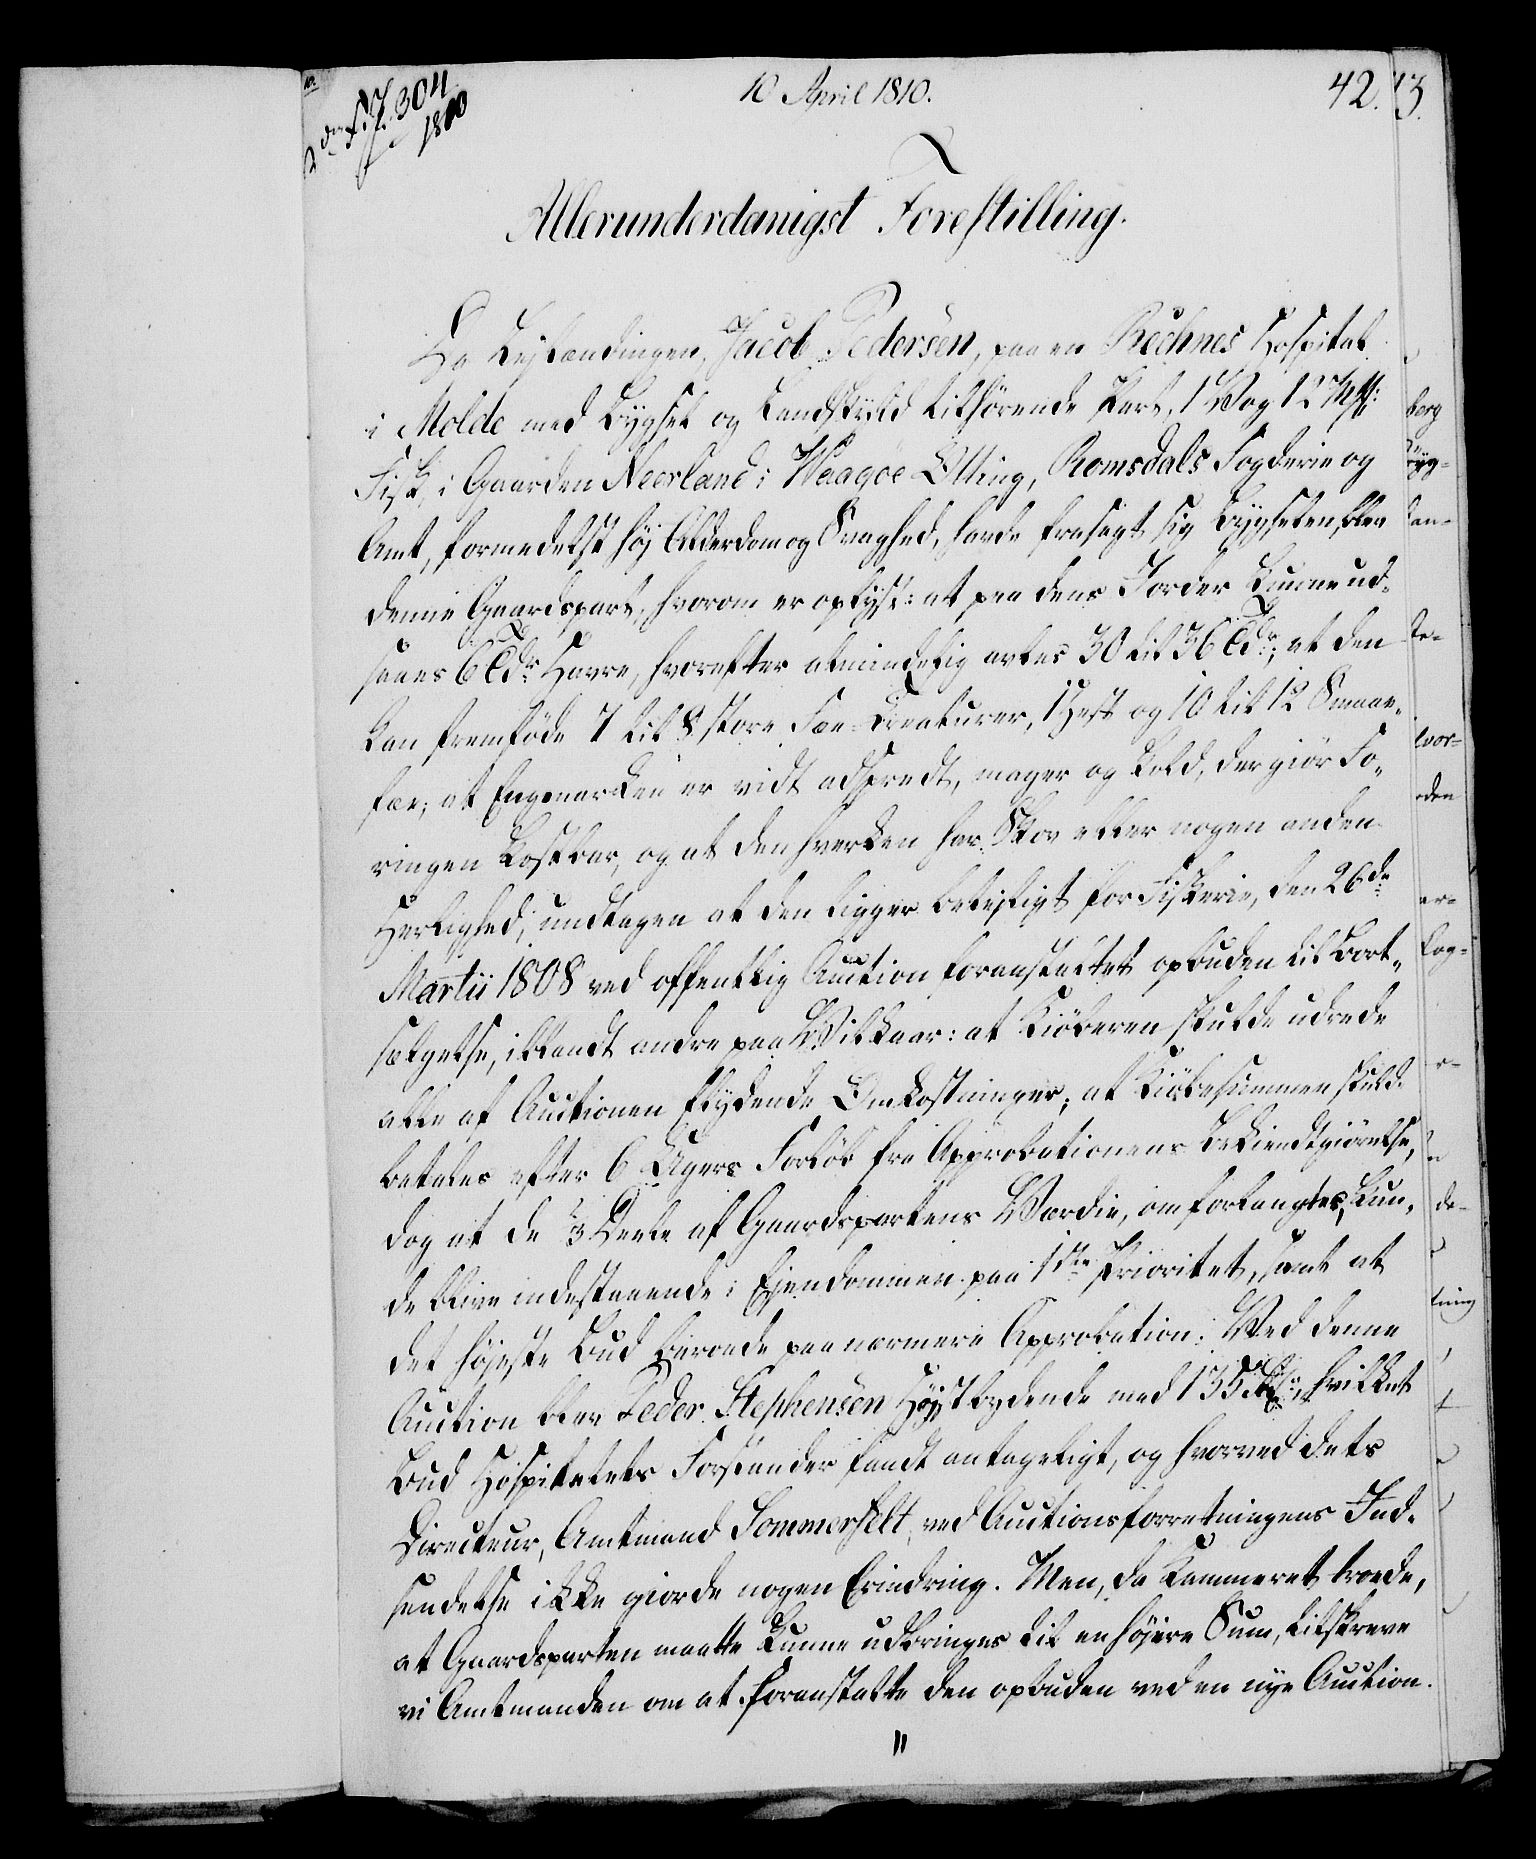 10 April 1810.
42.
2den F. J. 304
1810
Allerunderdanigst Forestilling.
Da Leylændingen, Jacob Pedersen, paa en Rechnes Hospital
i Molde med Bygsel og Landskyld tilhørende Part, 1 Vog 12 Mk:
Fisk, i Gaarden Neerland i Waagøe Otting, Romsdals Fogderie og
Amt, formedelst høj Alderdom og Svaghed, havde frasagt sig Bygselen
denne Gaardspart, hvorom er oplyst: at paa dens Jorder kunne ud-
saaes 6 Tdr Havre, hvorefter almindelig avles 30 til 36 Tdr; at den
kan fremføde 7 til 8 store Fæe-Creaturer, 1 Hest og 10 til 12 Smaae-
fæe; at Engmarken er vidt adspredt, mager og kold, der giør Fo-
ringen kostbar, og at den hverken har Skov eller nogen anden
Herlighed, undtagen at den ligger beleiligt for Fiskerie, den 26de
Martii 1808 ved offentlig Auction foranstaltet opbuden til Bort-
sælgelse, iblandt andre paa Vilkaar: at Kiøberen skulde udrede
alle af Auctionen flydende Omkostninger; at Kiøbesummen skulde
betales efter 6 Ugers Forløb fra Approbationens Bekiendtgiørelse,
dog at de 2/3 Deele af Gaardspartens Værdie, om forlangtes, kun-
de blive indestaaende i Ejendommen paa 1ste Prioritet, samt at
det højeste Bud beroede paa nærmere Approbation. Ved denne
Auction blev Peder Stephensen Højstbydende med 135 Rd:, hvilket
Bud Hospitalets Forstander fandt antageligt, og hvorved dets
Directeur, Amtmand Sommerfelt, ved Auctionsforretningens Ind-
sendelse ikke giorde nogen Erindring. Men, da Kammeret troede,
at Gaardsparten maatte kunne udbringes til en højere Sum, tilskreve
vi Amtmanden om at foranstalte den opbuden ved en nye Auction.